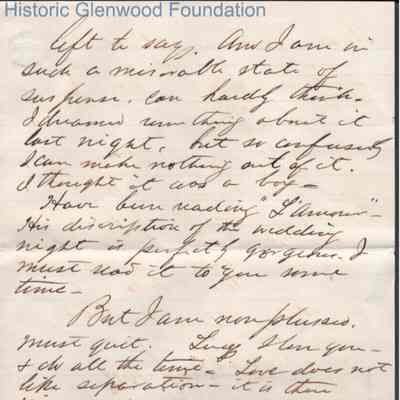 Historic Glenwood Foundation
left to say. And I am in
such a miserable state of
suspense, can hardly think.
I dreamed something about it
last night, but so confusedly
I can make nothing out of it.
I thought it was a boy —
Have been reading "L'Amour" —
His discription of the wedding
night is perfectly gorgeous. I
must read it to you some
time —
But I am nonplussed.
must quit. I love you —
& do all the time — "Love does not
like separation — it is then